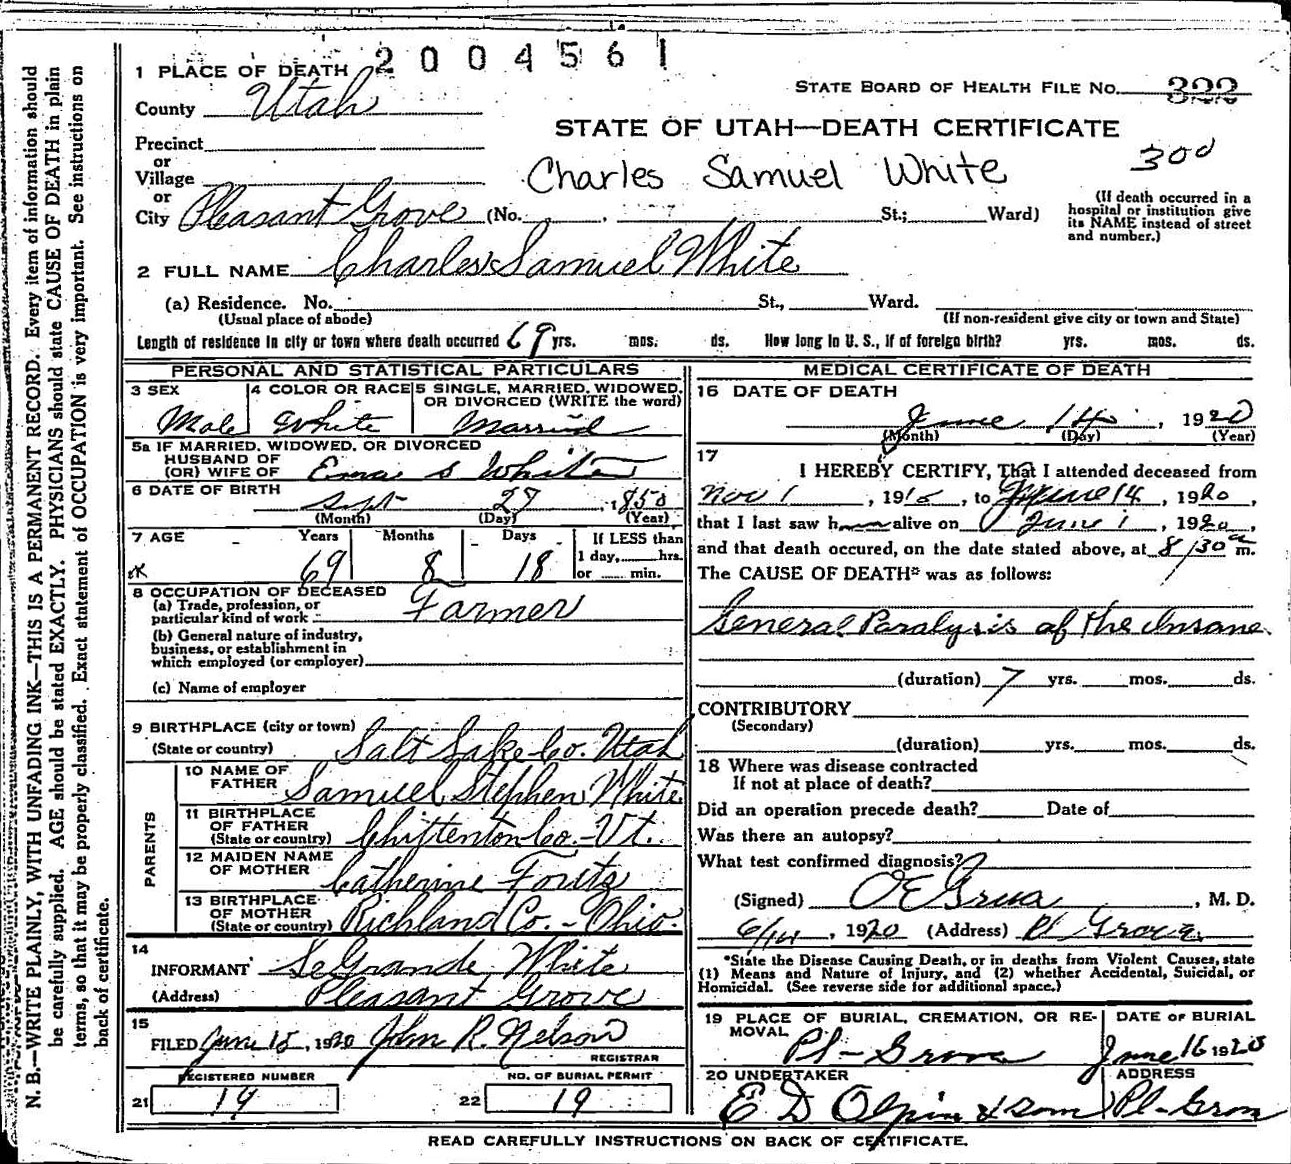 2004561
1 PLACE OF DEATH
STATE BOARD OF HEALTH FILE No. 322
County Utah
STATE OF UTAH—DEATH CERTIFICATE
300
Precinct
or
Village
Charles Samuel White
or
City Pleasant Grove (No. St.; Ward)
(If death occurred in a
hospital or institution give
its NAME instead of street
and number.)
2 FULL NAME Charles Samuel White
(a) Residence. No. St., Ward.
(Usual place of abode) (If non-resident give city or town and State)
Length of residence in city or town where death occurred 69 yrs. mos. ds. How long in U. S., if of foreign birth? yrs. mos. ds.
PERSONAL AND STATISTICAL PARTICULARS
3 SEX 4 COLOR OR RACE 5 SINGLE, MARRIED, WIDOWED,
OR DIVORCED (WRITE the word)
Male White Married
5a IF MARRIED, WIDOWED, OR DIVORCED
HUSBAND OF
(OR) WIFE OF Emma S White
6 DATE OF BIRTH
Sept 27, 1850
(Month) (Day) (Year)
7 AGE Years Months Days If LESS than
1 day, hrs.
or min.
69 8 18
8 OCCUPATION OF DECEASED
(a) Trade, profession, or
particular kind of work Farmer
(b) General nature of industry,
business, or establishment in
which employed (or employer)
(c) Name of employer
9 BIRTHPLACE (city or town)
(State or country) Salt Lake Co. Utah
PARENTS
10 NAME OF
FATHER Samuel Stephen White
11 BIRTHPLACE
OF FATHER
(State or country) Chittenton Co.-Vt.
12 MAIDEN NAME
OF MOTHER Catherine Foutz
13 BIRTHPLACE
OF MOTHER
(State or country) Richland Co. - Ohio.
14
INFORMANT LeGrande White
(Address) Pleasant Grove
15
FILED June 15, 1920 John R. Nelson
REGISTRAR
REGISTERED NUMBER NO. OF BURIAL PERMIT
21 19 22 19
MEDICAL CERTIFICATE OF DEATH
16 DATE OF DEATH
June 14, 1920
(Month) (Day) (Year)
17
I HEREBY CERTIFY, That I attended deceased from
Nov 1, 1916, to June 14, 1920,
that I last saw him alive on June 1, 1920,
and that death occured, on the date stated above, at 8/30 a m.
The CAUSE OF DEATH* was as follows:
General Paralysis of the Insane.
(duration) 7 yrs. mos. ds.
CONTRIBUTORY
(Secondary)
(duration) yrs. mos. ds.
18 Where was disease contracted
If not at place of death?
Did an operation precede death? Date of
Was there an autopsy?
What test confirmed diagnosis?
(Signed) O E Grua, M. D.
6/14, 1920 (Address) Pl Grove
*State the Disease Causing Death, or in deaths from Violent Causes, state
(1) Means and Nature of Injury, and (2) whether Accidental, Suicidal, or
Homicidal. (See reverse side for additional space.)
19 PLACE OF BURIAL, CREMATION, OR RE-
MOVAL
DATE OF BURIAL
Pl-Grove June 16 1920
20 UNDERTAKER ADDRESS
E D Olpin & Son Pl-Grove
READ CAREFULLY INSTRUCTIONS ON BACK OF CERTIFICATE.
N. B.—WRITE PLAINLY, WITH UNFADING INK—THIS IS A PERMANENT RECORD. Every item of information should
be carefully supplied. AGE should be stated EXACTLY. PHYSICIANS should state CAUSE OF DEATH in plain
terms, so that it may be properly classified. Exact statement of OCCUPATION is very important. See instructions on
back of certificate.